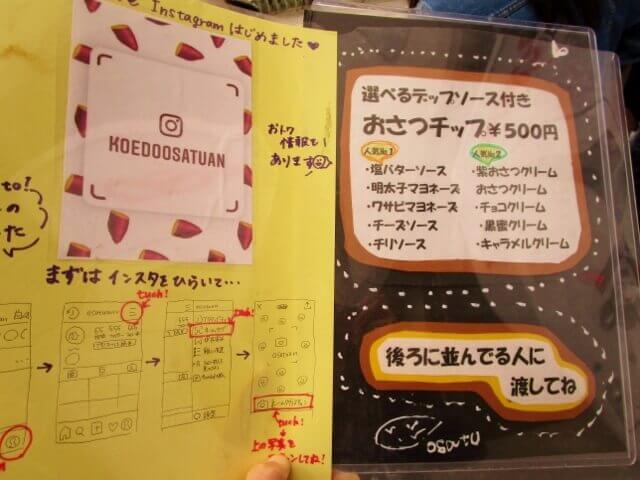 Instagram はじめました
KOEDOOSATUAN
おトク
情報も
あります
まずは インスタをひらいて…
tuch!
tuch!
tuch!
上の写真を
してね!
選べるデップソース付き
おさつチップ。¥500円
人気No.1
・塩バターソース
・明太子マヨネーズ
・ワサビマヨネーズ
・チーズソース
・チリソース
人気No.2
・紫おさつクリーム
おさつクリーム
・チョコクリーム
・黒蜜クリーム
・キャラメルクリーム
後ろに並んでる人に
渡してね
osatu